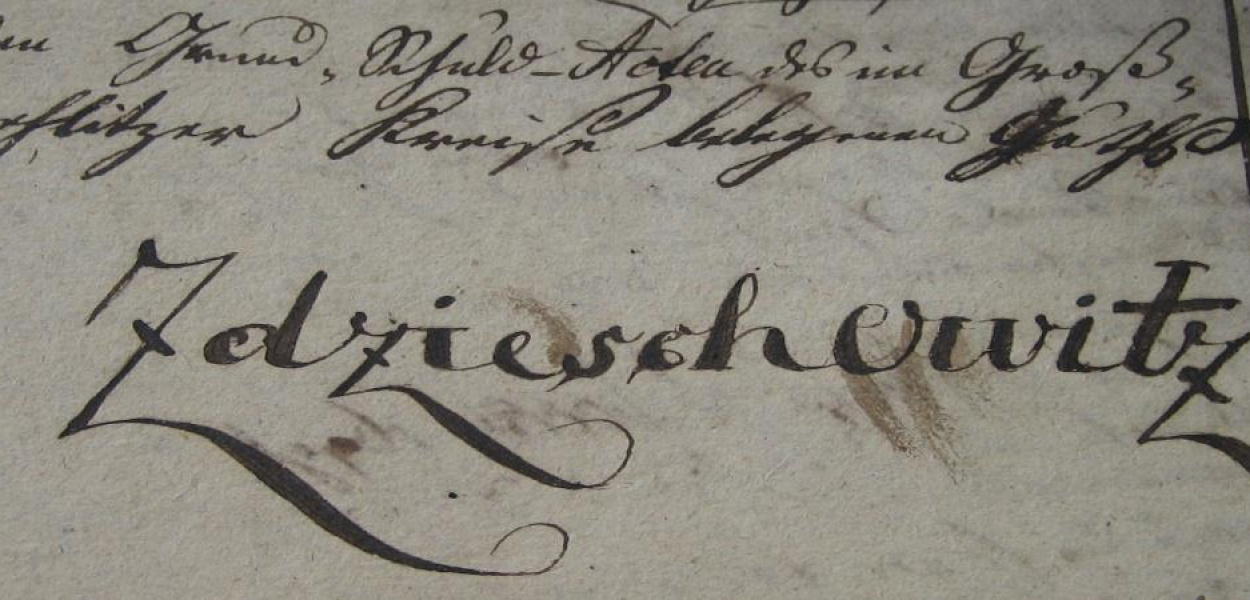 Grund- Schuld-Acten des im Groß-
Kreise belegenen Guths
Zdzieschowitz